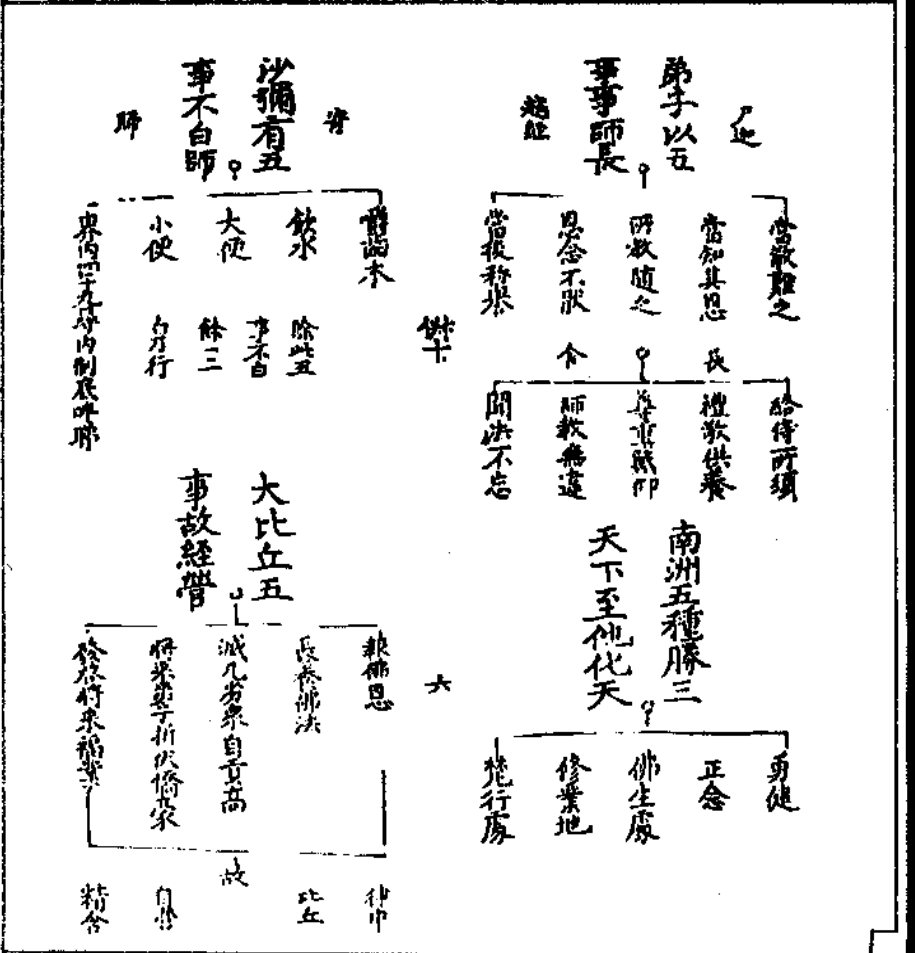 弟子以五
事事師長
當敬難之
當知其恩
所教隨之
恩念不厭
當後称举
長
含
給侍所須
禮敬供養
師教無違
聞法不忘
南洲五種勝三
天下至他化天
勇健
正念
佛生處
修業地
梵行處
沙彌有五
事不白師
嚼齒木
飲水
大便
小便
界内四十九尋内制底畔睇
除此五
事不白
餘三
大比丘五
事故經營
報佛恩
長養佛法
滅凡劣衆自貢高
發起將來福業
故
律中
比丘
自營
精舍
六